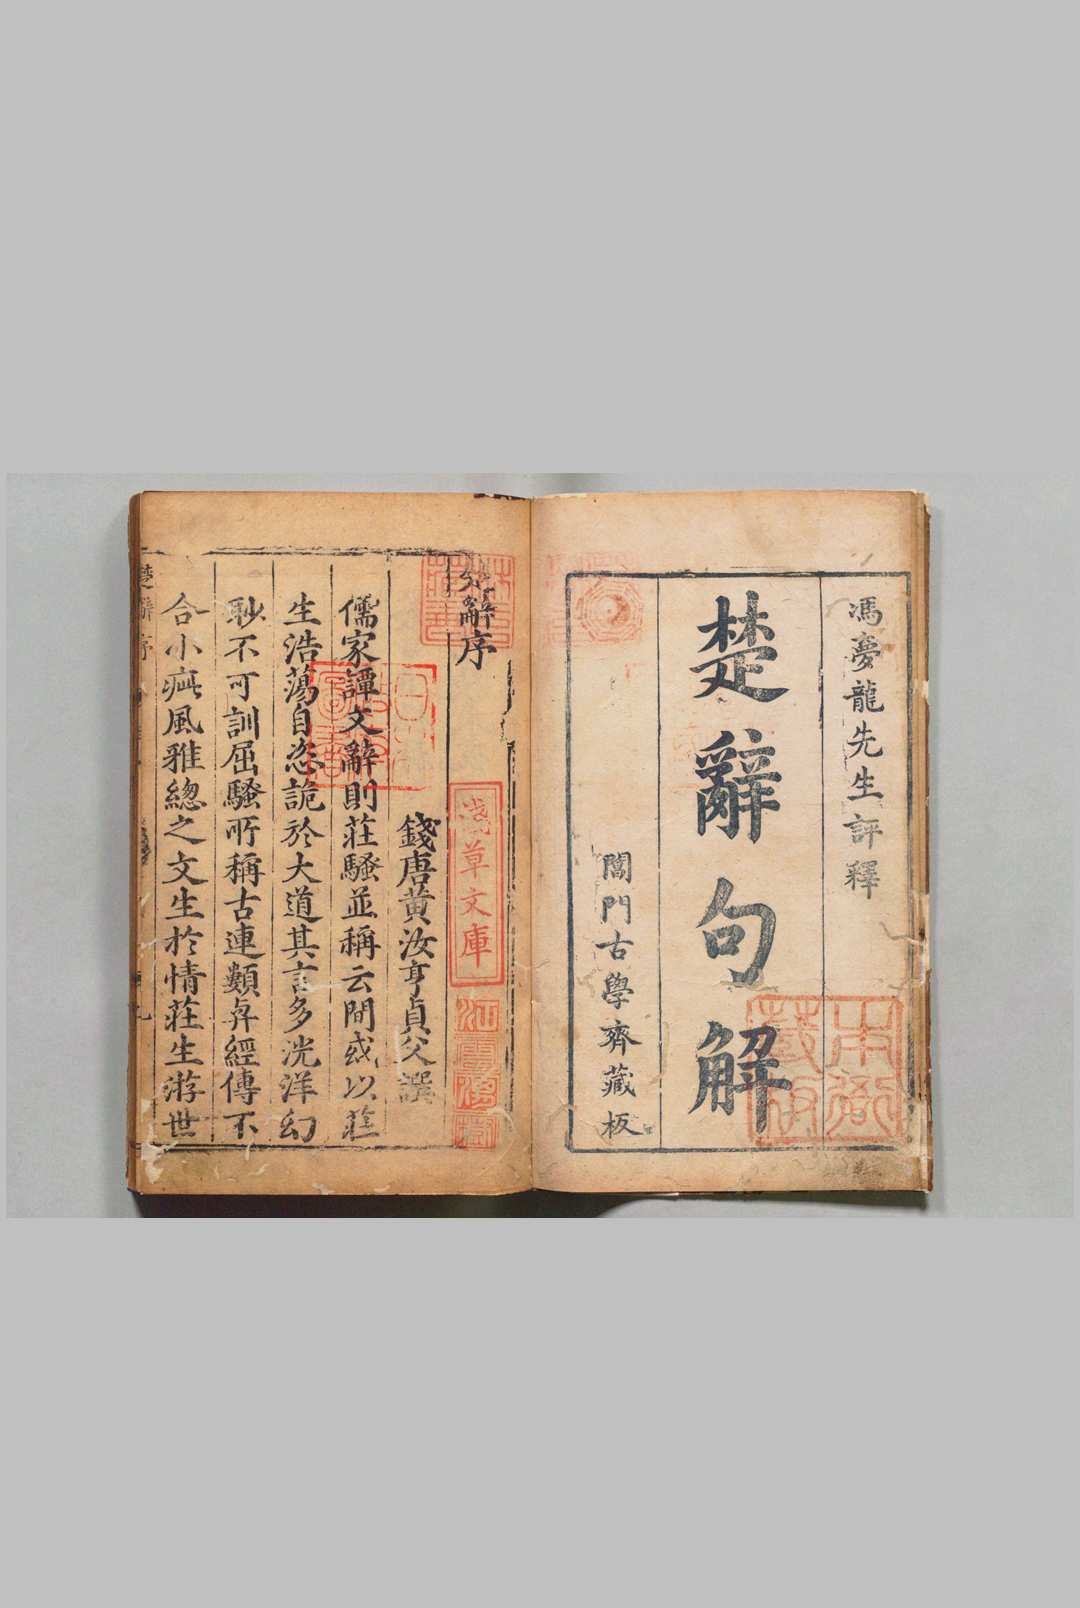 馮夢龍先生評釋
楚辭句解
閶門古學齊藏板
本衙藏板
楚辭序
淺草文庫
錢唐黃汝亨貞父譔
儒家譚文辭則莊騷並稱云間或以莊
生浩蕩自恣詭於大道其言多洸洋幻
眇不可訓屈騷所稱古連類弇經傳不
合小疵風雅總之文生於情莊生游世
楚辭序